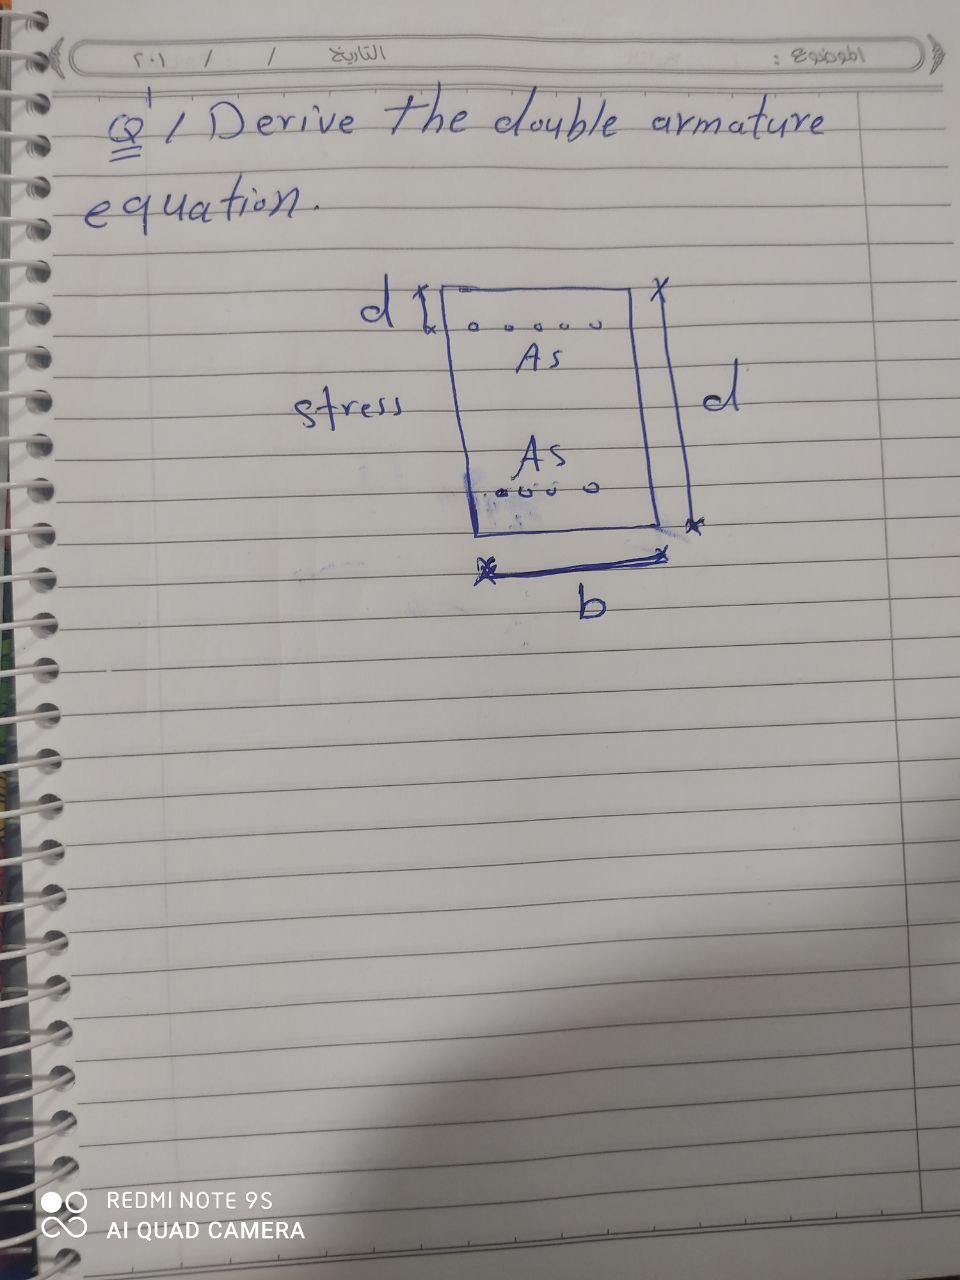 الموضوع : التاريخ / / ٢٠١
Q1 / Derive the double armature
equation.
d
As
stress
d
As
b
REDMI NOTE 9S
AI QUAD CAMERA